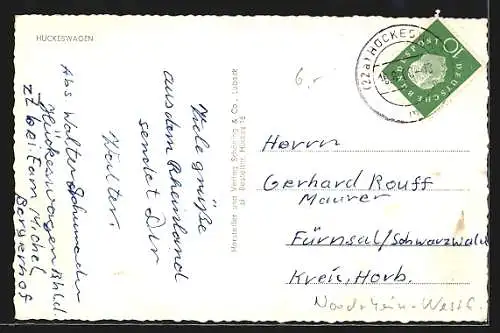 HÜCKESWAGEN
Abs Walter Schumacher
Hückeswagen Rhld.
zZ bei Fam Michel
Bergerhof
Viele grüße
aus dem Rheinland
sendet Dir
Walter.
Hersteller und Verlag Schöning & Co., Lübeck
Bestellnr.
6,-
(22a) HÜCKES
10
DEUTSCHE BUNDESPOST
Herrn
Gerhard Rouff
Maurer
Fürnsal/Schwarzwald
Kreis, Horb.
Nordrhein-Westf.